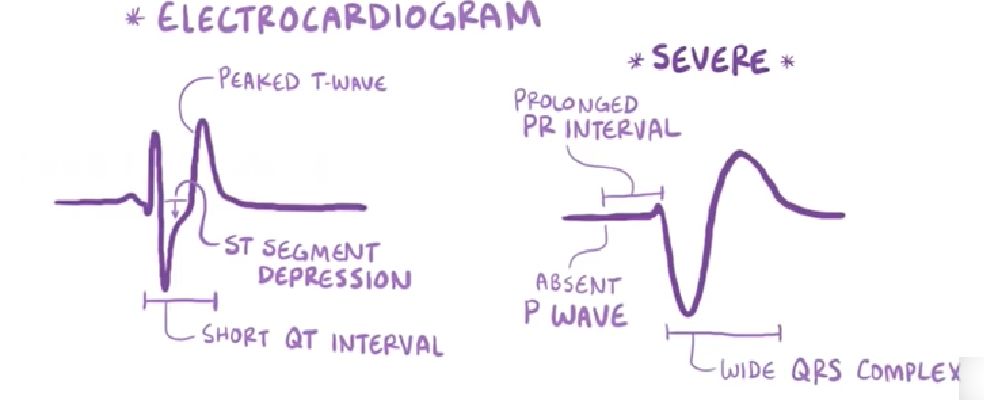 * ELECTROCARDIOGRAM
PEAKED T-WAVE
ST SEGMENT
DEPRESSION
SHORT QT INTERVAL
* SEVERE *
PROLONGED
PR INTERVAL
ABSENT
P WAVE
WIDE QRS COMPLEX